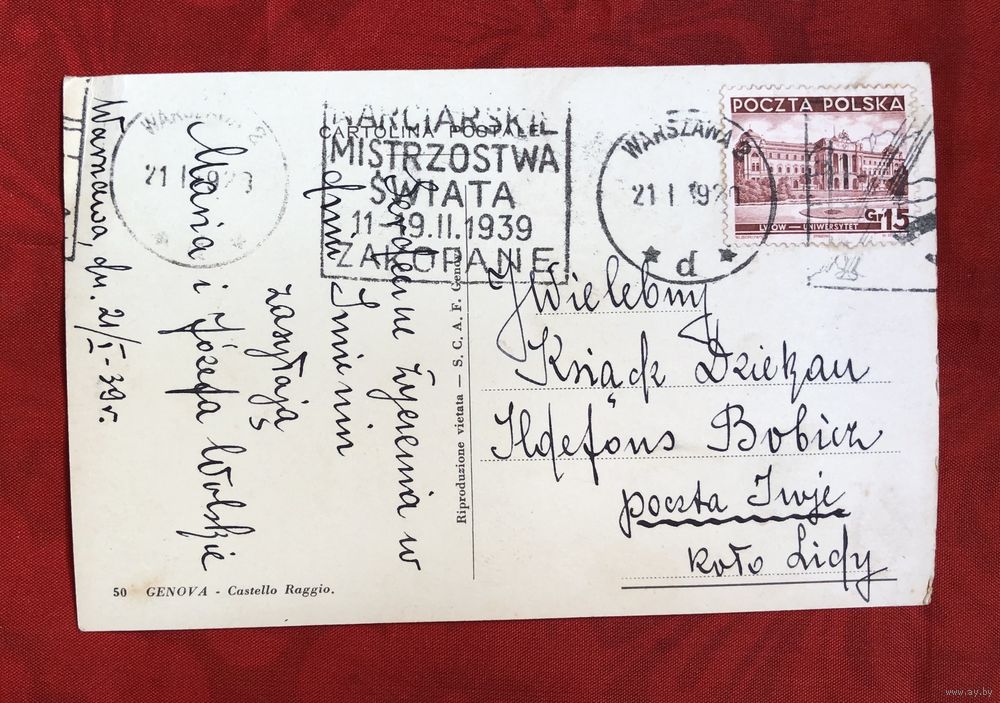 WARSZAWA 2
21 I 1939
NARCIARSKIE
MISTRZOSTWA
ŚWIATA
11-19.II.1939
ZAKOPANE
CARTOLINA POSTALE
WARSZAWA 2
21 I 193
d
POCZTA POLSKA
Gr 15
LWÓW — UNIWERSYTET
Serdeczne życzenia w
dniu Imienin
zasyłają
Maria i Józefa Wolskie
Warszawa, dn. 21/I-39 r.
Riproduzione vietata — S. C. A. F. Genova
Wielebny
Ksiądz Dziekan
Ildefons Bobicz
poczta Iwje
koło Lidy
50 GENOVA - Castello Raggio.
www.ay.by